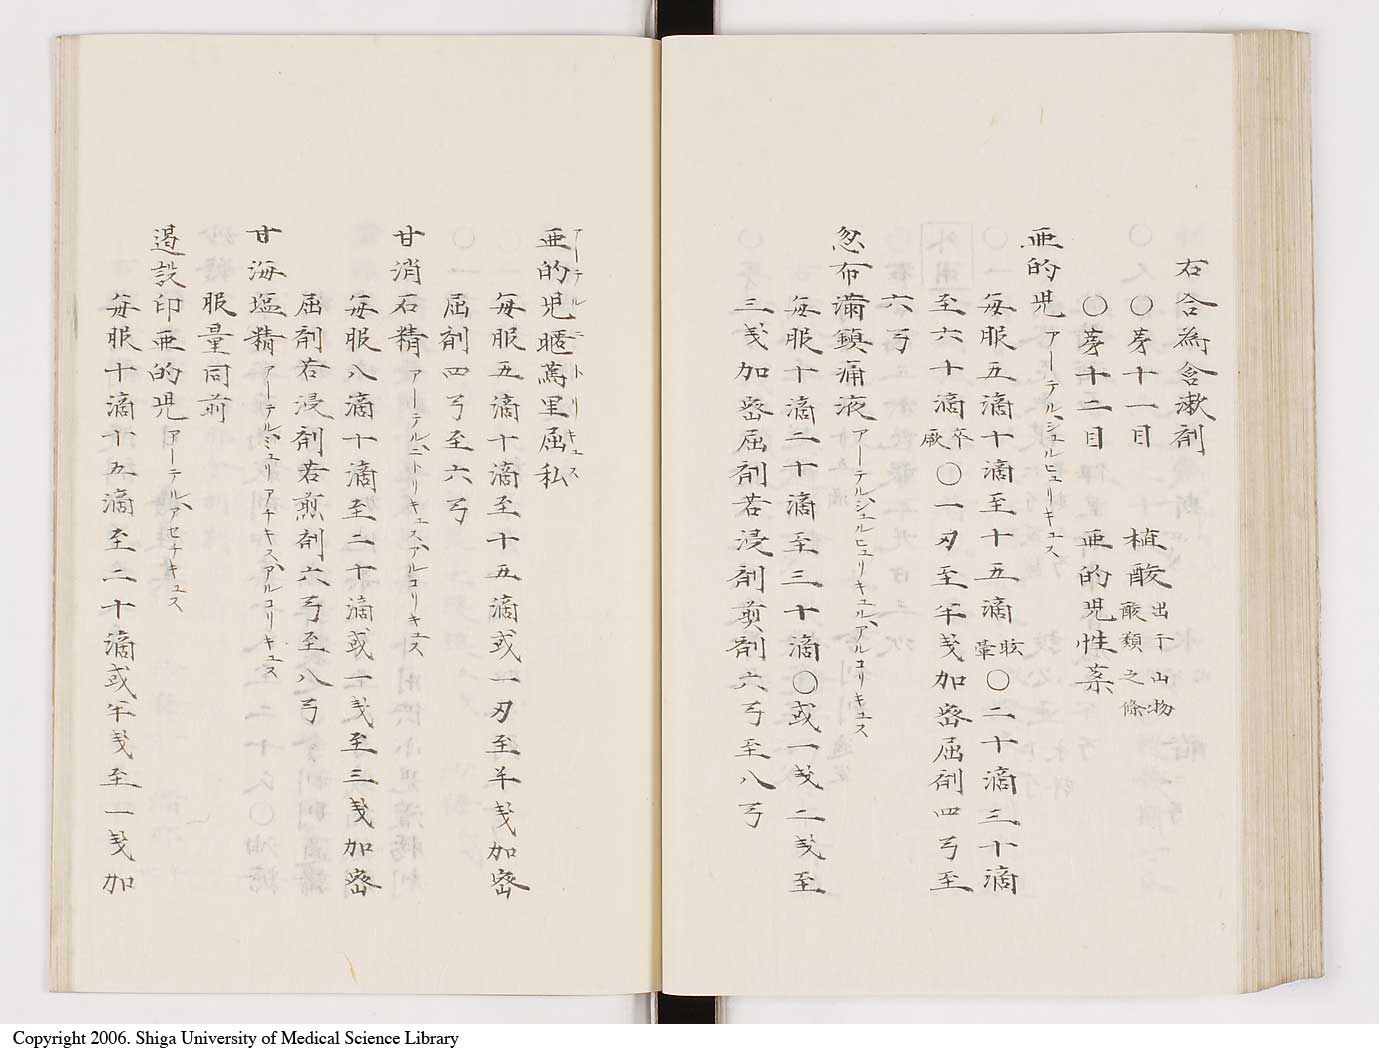 右合為含漱剤
〇蓡十一目 植酸 出于山物酸類之條
〇蓡十二目 亜的児性薬
亜的児 アーテル、ジュルヒュリキュス
毎服五滴十滴至十五滴 眩暈 〇二十滴三十滴
至六十滴 卒厥 〇一刃至半戔加密屈剤四弓至
六弓
忽布満鎮痛液 アーテル、ジュルヒュリキュル、アルコリキュス
毎服十滴二十滴至三十滴〇或一戔二戔至
三戔加密屈剤若浸剤煎剤六弓至八弓
亜的児 里屈私 アーテルニトリキュス
毎服五滴十滴至十五滴或一刃至半戔加密
屈剤四弓至六弓
甘消石精 アーテル、ニトリキュス、アルコリキュス
毎服八滴十滴至二十滴或一戔至三戔加密
屈剤若浸剤若煎剤六弓至八弓
甘海塩精 アーテル、ミュリアチキス、アルコリキュス
服量同前
遏設印亜的児 アーテル、アセチキュス
毎服十滴十五滴至二十滴或半戔至一戔加
Copyright 2006. Shiga University of Medical Science Library